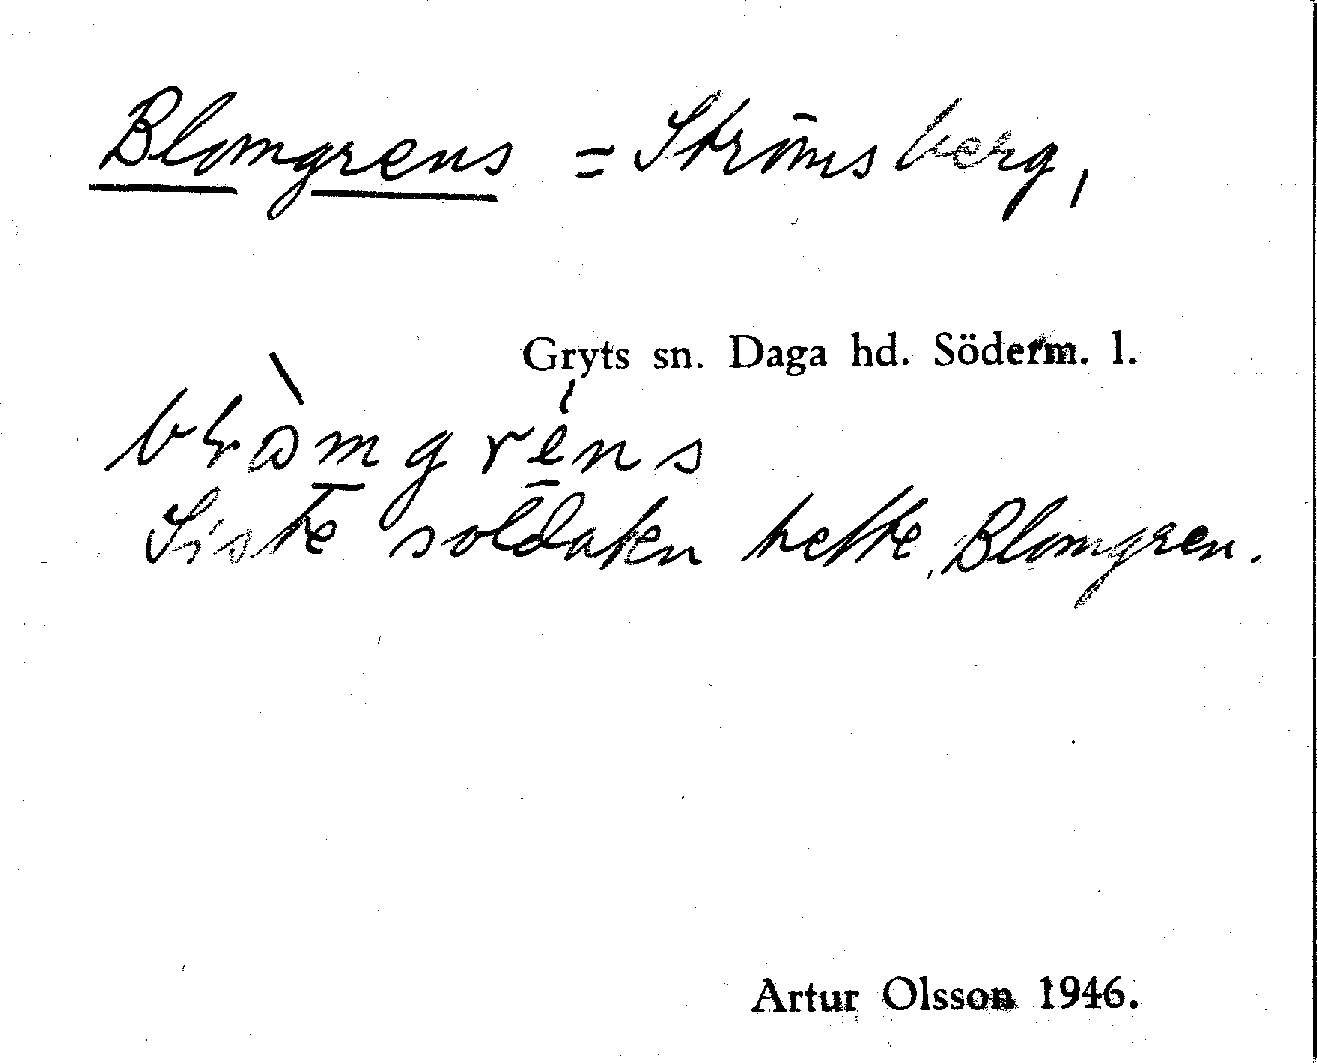 Blomgrens = Strömsberg,
Gryts sn. Daga hd. Söderm. l.
Siste soldaten hette Blomgren.
Artur Olsson 1946.